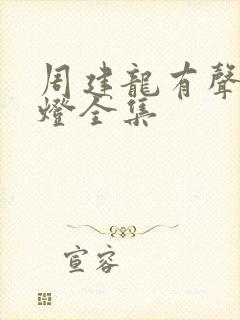 周建龍有聲
燈全集
宣容